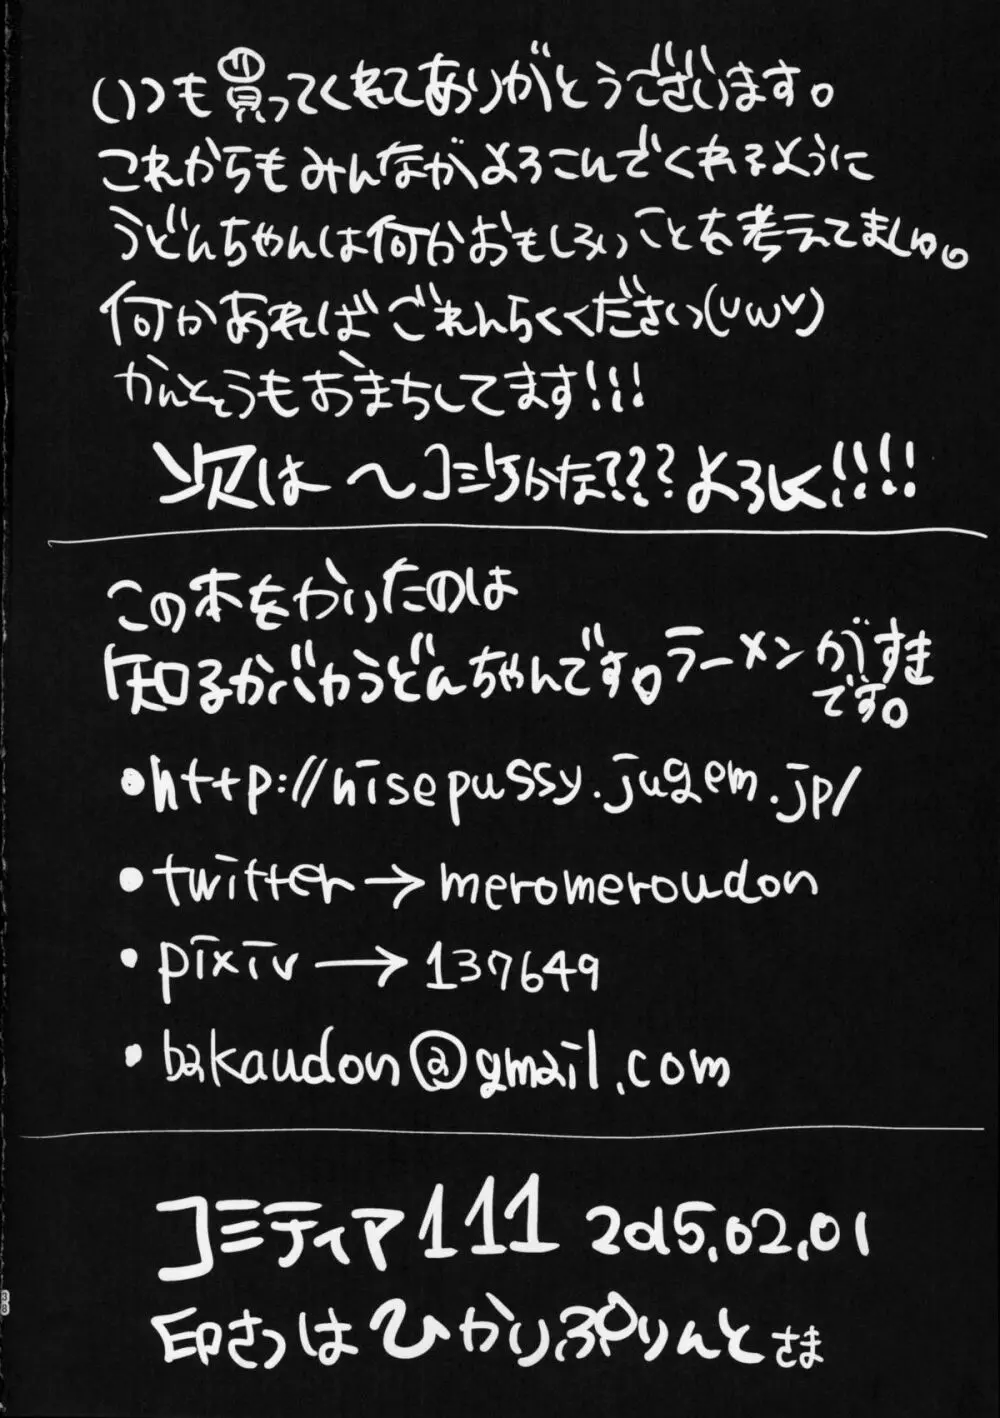 いつも買ってくれてありがとうございます。
これからもみんながよろこんでくれるように
うどんちゃんは何かおもしろいことを考えてましゅ。
何かあればごれんらくください(∪ω∪)
かんそうもおまちしてます!!!
次は～コミケかな???よろしく!!!!
この本をかいたのは
「知るかバカうどんちゃんです。ラーメンがすき
です。
•http://nisepussy.jugem.jp/
•twitter→meromeroudon
•pixiv→137649
•bakaudon@gmail.com
コミティア111 2015.02.01
印さつはひかりぷりんとさま
38